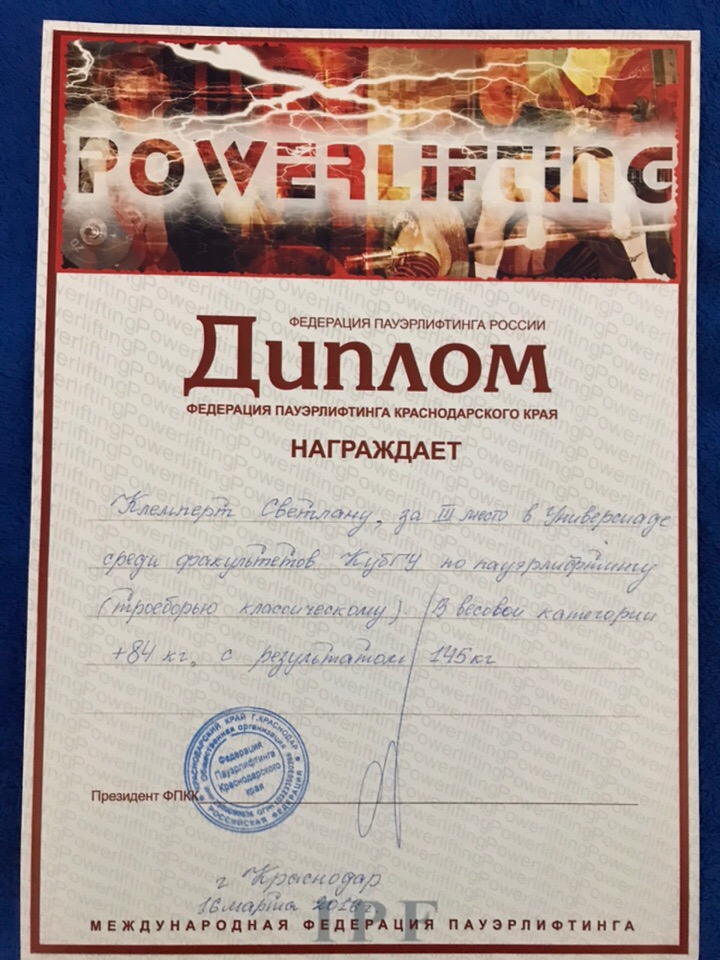 POWERLIFTING
ФЕДЕРАЦИЯ ПАУЭРЛИФТИНГА РОССИИ
Диплом
ФЕДЕРАЦИЯ ПАУЭРЛИФТИНГА КРАСНОДАРСКОГО КРАЯ
НАГРАЖДАЕТ
Клемперт Светлану, за III место в Универсиаде
среди факультетов КубГУ по пауэрлифтингу
(троеборью классическому). В весовой категории
+84 кг, с результатом 145 кг
КРАСНОДАРСКИЙ КРАЙ Г. КРАСНОДАР
Общественная организация
Федерация
Пауэрлифтинга
Краснодарского
края
РОССИЙСКАЯ ФЕДЕРАЦИЯ
Президент ФПКК
г. Краснодар
16 марта
IPF
МЕЖДУНАРОДНАЯ ФЕДЕРАЦИЯ ПАУЭРЛИФТИНГА